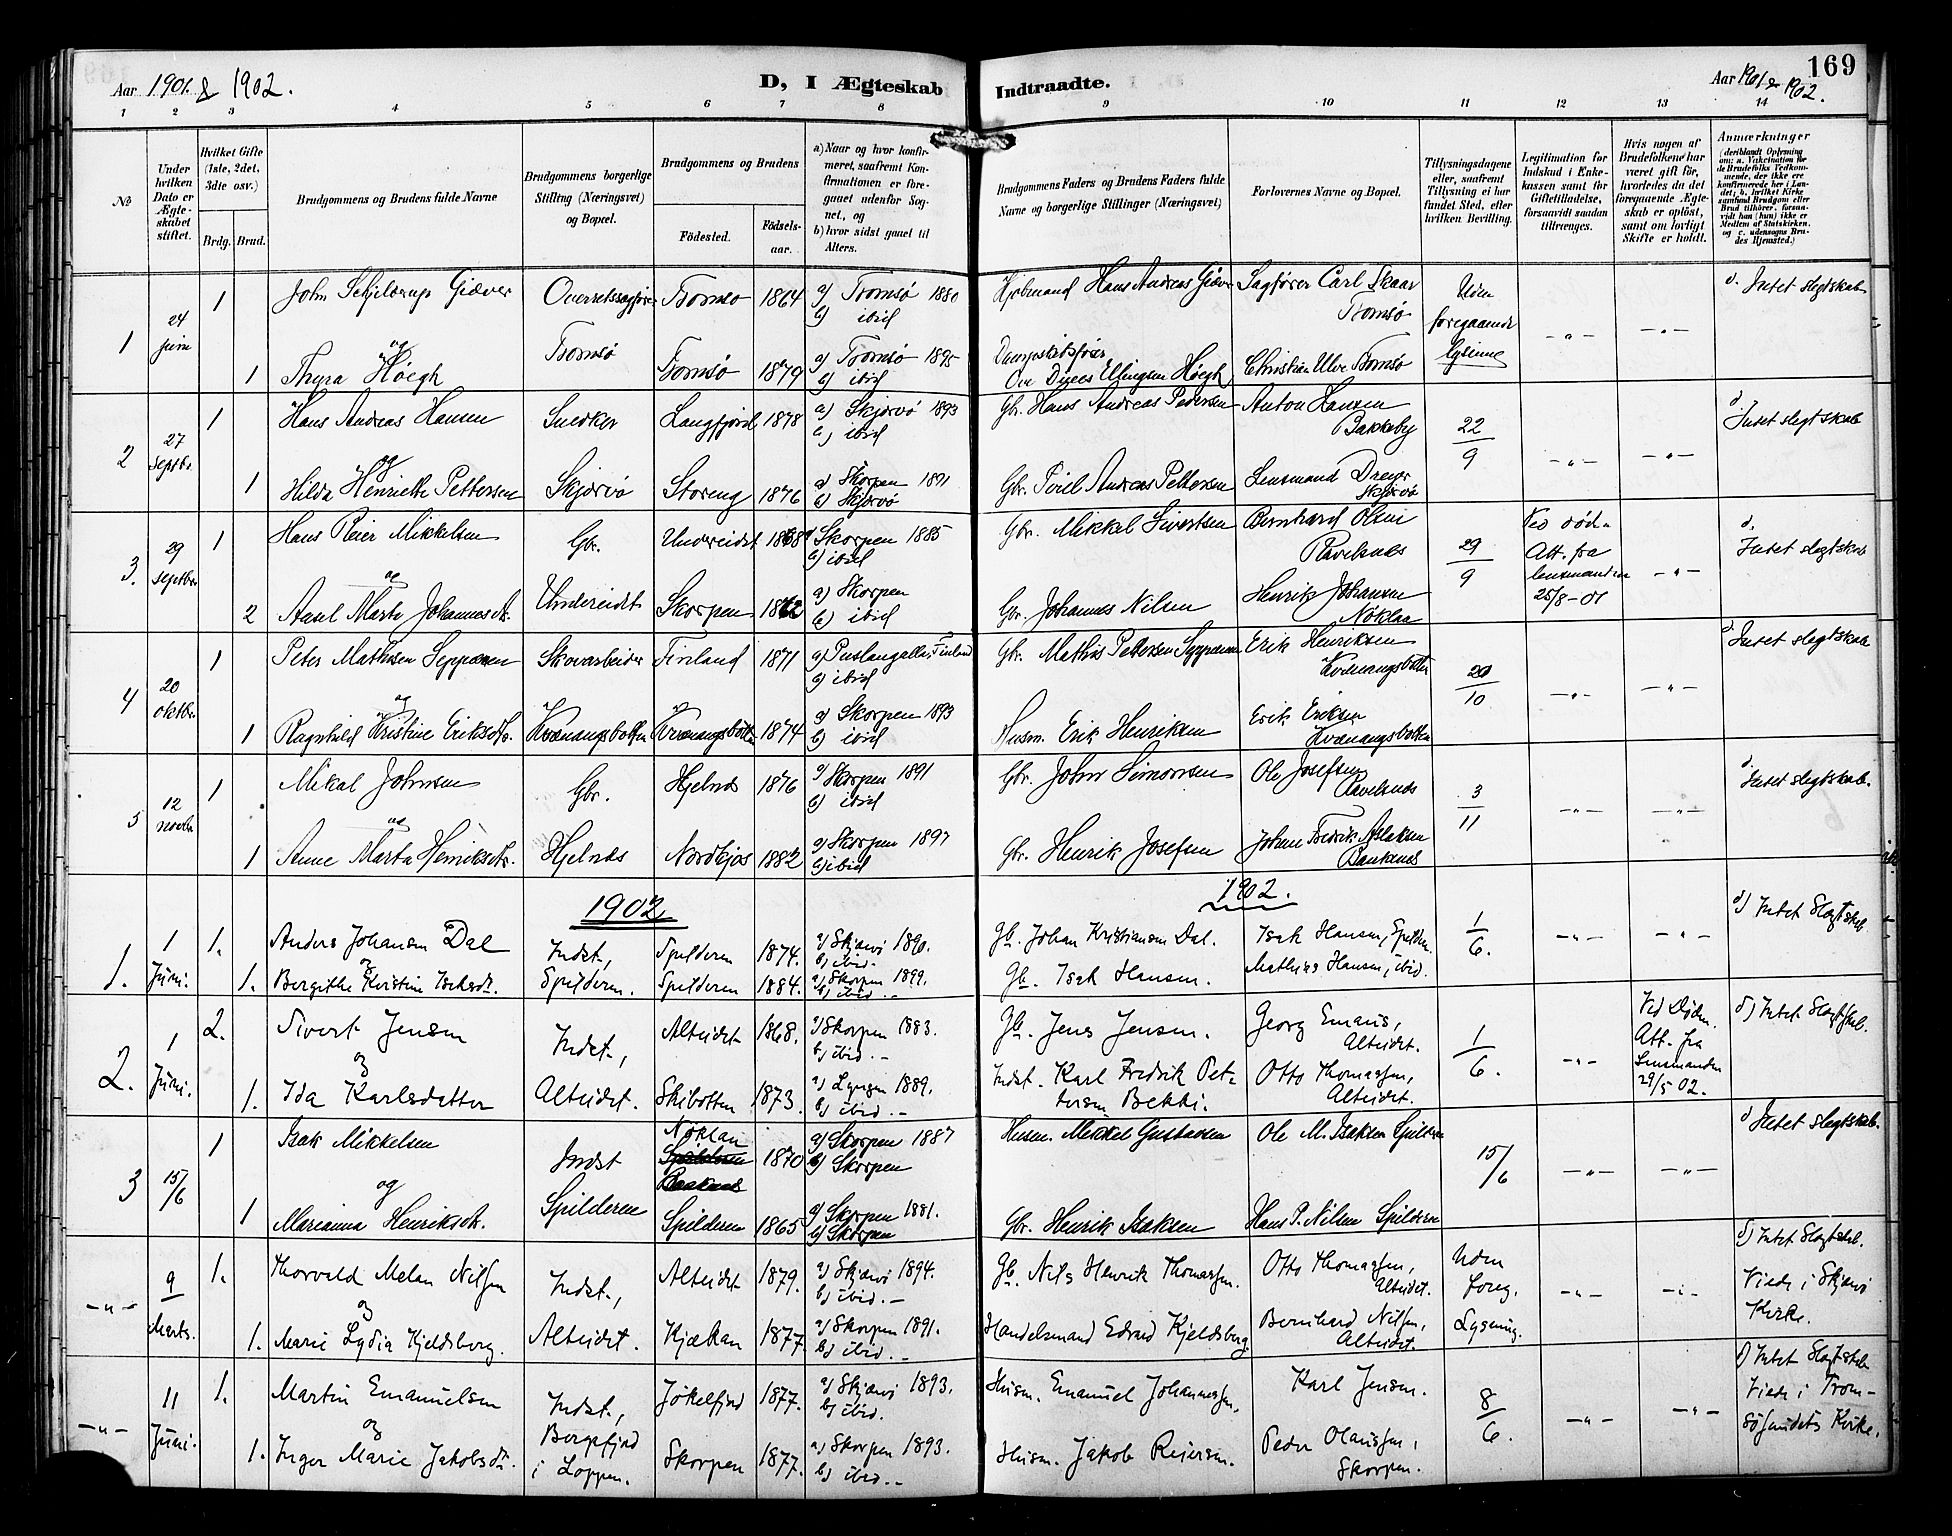 169
Aar 1901 & 1902.
D, I Ægteskab
Indtraadte.
Aar 1901 & 1902.
1 2 3 4 5 6 7 8
9 10 11 12 13 14
No
Under hvilken Dato er Ægteskabet stiftet.
Hvilket Gifte (1ste, 2det, 3dte osv.)
Brdg. Brud.
Brudgommens og Brudens fulde Navne
Brudgommens borgerlige Stilling (Næringsvei) og Bopæl.
Brudgommens og Brudens
Fødested. Fødsels-aar.
a) Naar og hvor konfirmeret, saafremt Konfirmationen er foregaaet udenfor Sognet, og
b) hvor sidst gaaet til Alters.
Brudgommens Faders og Brudens Faders fulde Navne og borgerlige Stillinger (Næringsvei)
Forlovernes Navne og Bopæl.
Tillysningsdagene eller, saafremt Tillysning ei har fundet Sted, efter hvilken Bevilling.
Legitimation for Indskud i Enkekassen samt for Giftetilladelse, forsaavidt saadan tiltrænges.
Hvis nogen af Brudefolkene har været gift før, hvorledes da det foregaaende Ægteskab er opløst, samt om lovligt Skifte er holdt.
Anmærkninger
(deriblandt Oplysning om: a. Vakcination for de Brudefolks Vedkommende, der ikke ere konfirmerede her i Landet; b. hvilket Kirkesamfund Brudgom eller Brud tilhører, forsaavidt han (hun) ikke er Medlem af Statskirken, og c. udensogns Brudes Hjemsted.)
1 24 juni 1 John Schjelderup Giæver Overretssagfører Tromsø 1864 a) Tromsø 1880 b) ibid Hans Andreas Giæver Sagfører Carl Skaar Tromsø Uden foregaaende lysning -"- -"- d. Intet slegtskab
og
1 Thyra Høegh Tromsø Tromsø 1879 a) Tromsø 1895 b) ibid Høegh Christian Tromsø
2 27 Septbr. 1 Hans Andreas Hansen Snedker Langfjord 1878 a) Skjervø 1893 b) ibid Gbr. Hans Andreas Pedersen Anton Hansen Bakkeby 22/9 -"- -"- d. Intet slegtskab
og
1 Hilda Henriette Pettersen Skjervø Storeng 1876 a) Skorpen 1891 b) Skjervø Gbr. Andreas Pettersen Lensmand Dreyer Skjervø
3. 29 Septbr. 1 Hans Reier Mikkelsen Gbr. Undereidet 1868 a) Skorpen 1885 b) ibid Gbr. Mikkel Sivertsen Bernhard Olsen Ravelsnes 29/9 Ved død. Att. fra lensmanden 25/8-01 -"- d. Intet slegtskab
og
2 Marta Johannesdtr. Undereidet Skorpen 1862 a) Skorpen b) ibid Gbr. Johannes Nilsen Henrik Johansen Nøklan
4 20 oktbr. 1 Peter Mathisen Seppænen Skovarbeider Finland 1871 Finland b) ibid Gbr. Mathis Pettersen Erik Henriksen Kvænangsbotten 20/10 -"- -"- d. Intet slegtskab
og
1 Ragnhild Kristine Eriksdtr. Kvænangsbotten Kvænangsbotten 1874 a) Skorpen 1893 b) ibid Husm. Erik Henriksen Erik Eriksen Kvænangsbotten
5 12 novbr. 1 Mikal Johnsen Gbr. Hjelnes 1876 a) Skorpen 1891 b) ibid Gbr. John Simonsen Ole Josefsen Ravelsnes 3/11 -"- -"- d. Intet slegtskab.
og
1 Anne Marta Henriksdtr. Hjelnes Nordkjos 1882 a) Skorpen 1897 b) ibid Gbr. Henrik Josefsen Johan Fredrik Aslaksen
1902
1902.
1. 1 Juni. 1. Anders Johansen Dal Indst., Spilderen 1874. a) Skjervø 1890. b) ibid. Gb. Johan Kristiansen Dal. Isak Hansen, Spilderen. 1/6. -"- -"- d) Intet Slegtskab.
og
1. Bergithe Kristine Isaksdtr. Spilderen. Spilderen 1884. a) Skorpen 1899. b) ibid. Gb. Isak Hansen. Mathias Hansen, ibid.
2. 1 Juni. 2. Sivert Jensen Indst., Alteidet 1868. a) Skorpen 1883. b) ibid. Gb. Jens Jensen. Georg Emaus, Alteidet. 1/6. -"- Ved Døden. Att. fra Lensmanden 29/5 02. d) Intet Slegtskab.
og
1. Ida Karlsdatter Alteidet. Skibotten 1873. a) Lyngen 1889. b) ibid. Indst. Karl Fredrik Petersen Bekki. Otto Thomassen, Alteidet.
3 15/6 1 Isak Mikkelsen Indst Nøklan Spilderen 1870 a) Skorpen 1887 b) Skorpen Husm. Mikkel Gustavsen Ole M. Isaksen Spilderen 15/6 -"- -"- d) Intet slegtskab.
og
1 Marianna Henriksdtr. Spilderen Spilderen 1865 a) Skorpen 1881. b) Skorpen Gbr. Henrik Isaksen Hans P. Nilsen Spilderen
-"- 9 Marts. 1. Thorvald Melan Nilsen Indst., Alteidet 1879. a) Skjervø 1894. b) ibid. Gb. Nils Henrik Thomassen. Otto Thomassen, Alteidet. Uden foreg. Lysning. -"- -"- d) Intet Slegtskab. Viede i Skjervø Kirke.
og
1. Marie Lydia Kjeldsberg. Alteidet. Kjækan 1877 a) Skorpen 1891. b) ibid. Handelsmand Edvard Kjeldsberg Bernhard Nilsen, Alteidet.
-"- 11 Juni. 1. Martin Emanuelsen Indst., Jøkelfjord 1877. a) Skjervø 1893. b) ibid. Husm. Emanuel Johannessen. Karl Jensen. 8/6. -"- -"- d) Intet Slegtskab Viede i Tromsøsundets Kirke.
og
1. Inger Marie Jakobsdtr. Bergsfjord i Loppen. Skorpen 1877. a) Skorpen 1893. b) ibid. Husm. Jakob Reiersen. Peder Olaussen, Skorpen.